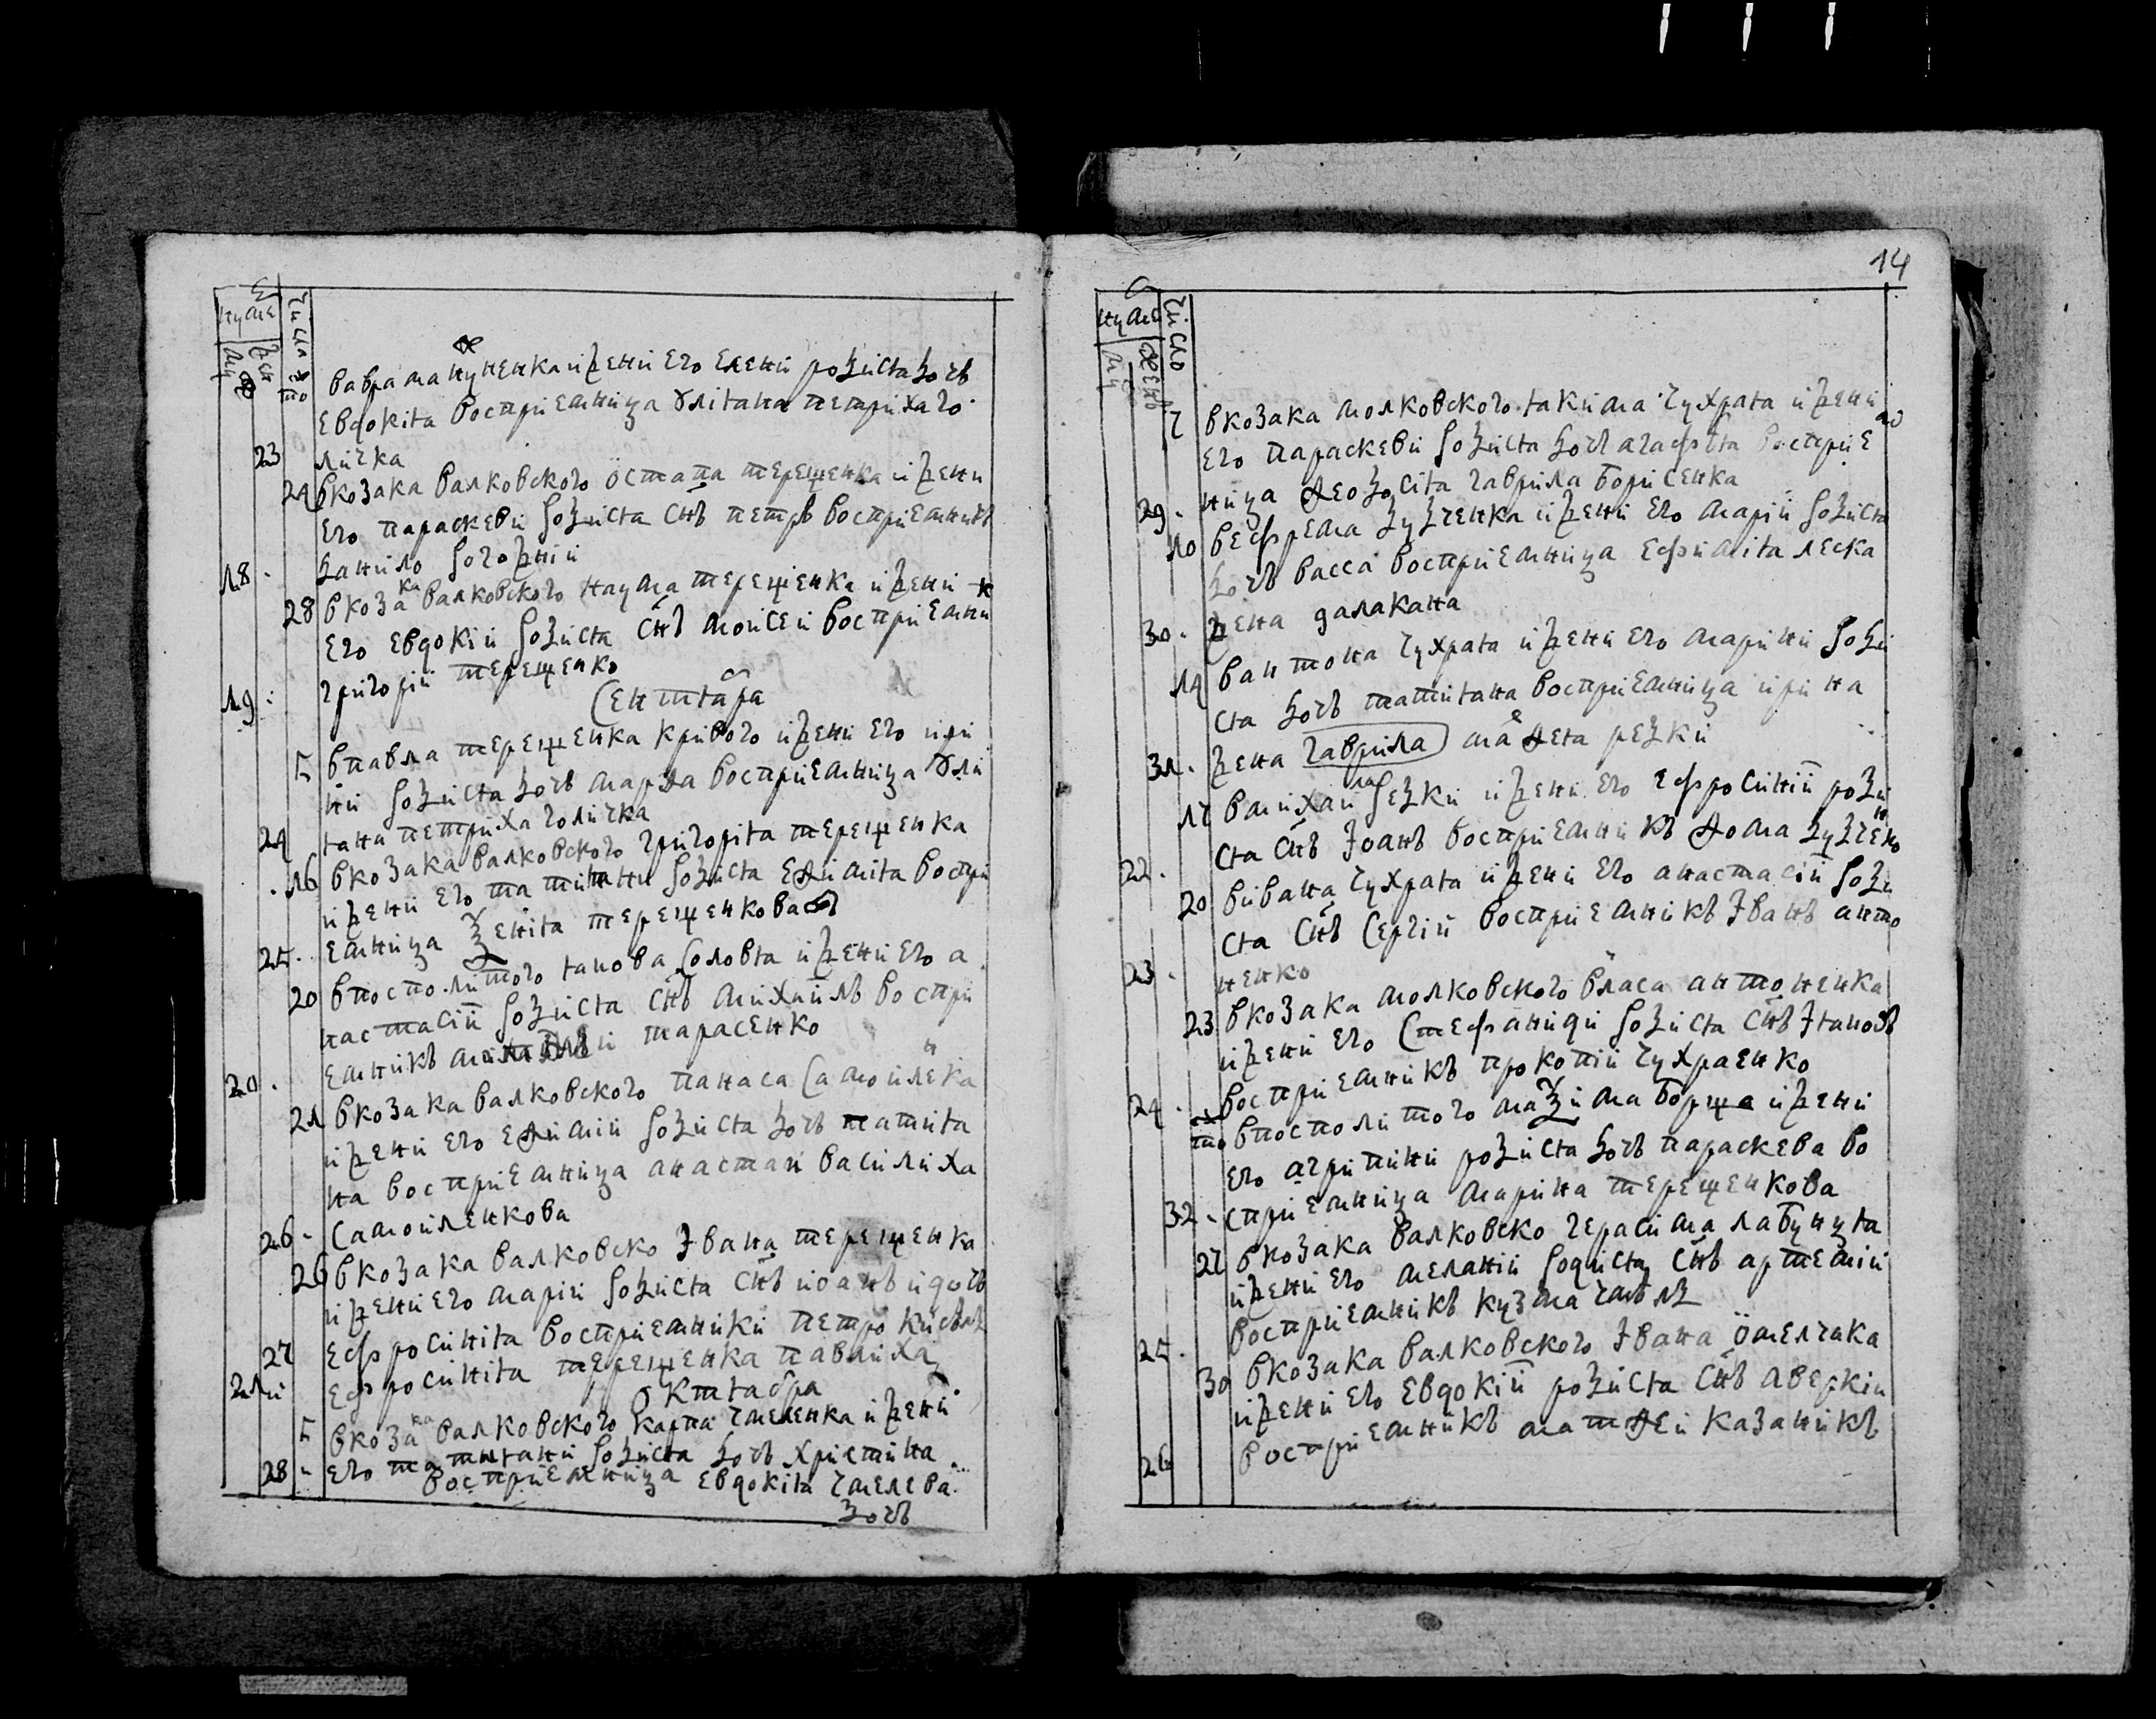 нуме
числ
то
в аврама нуненка и жени его елени родиста дочъ
евдокіта воспріемница улітана петриха го
23 личка
24 в козака валковского остапа терещенка и жени
его параскеви родиста снъ петръ воспріемникъ
18. данило
28 в козака валковского наума терещенка и жени
его евдокіи родиста снъ моисеи воспріемни к
19. григоріи терещенко
сентіабра
5 в павла терещенка кривого и жени его ири
ни родиста дочъ марѳа воспріемница улі
24 тана петриха голичка
16 в козака валковского григоріта терещенка
и жени его татіани родиста еѳиміта воспри
25. емница Ксеніта терещенкова
20 в посполитого іакова соловіа и жени его а
настасіи родиста снъ михаилъ воспри
20. емникъ тарасенко
21 в козака валковского панаса самоиленка
и жени его еѳиміи родиста дочъ татіта
на воспріемница анастасіи василиха
26. самоиленкова
26 в козака валковско Ивана терещенка
и жени его маріи родиста снъ иоанъ и дочъ
27 ефросиніта воспріемники петро
21 и ефросиніта терещенка павлиха
октіабра
5 в козака валковского карпа гмеленка и жени
28 его татиіани родиста дочъ христина
воспріемница евдокіта гмелева
дочъ
14
нуме
число
женъ
7 в козака молковского іакима чухраіа и жени
его параскеви родиста дочъ агафіта воспріе м
29. ница ѳеодосіта гаврила борисенка
10 в ефрема дудченка и жени его маріи родиста
дочъ васса воспріемница ефиміта леска
30. жена галакана
14 в антона чухраіа и жени его марини роди
ста дочъ татііана воспріемница ирина
31. жена гаврила маѳеіа редки
17 в михаила редки и жени его ефросиніи роди
ста снъ Iоанъ воспріемникъ ѳома дудченко
22. 20 в івана чухраіа и жени его анастасіи роди
ста снъ сергіи воспріемникъ Іванъ анто
23. ненко
23 в козака молковского власа антоненка
и жени его стефаниди родиста снъ Іаковъ
воспріемникъ прокопіи чухраенко
24. то в посполитого максима борща и жени
его агрипини родиста дочъ параскева во
32. спріемница марина терещенкова
27 в козака валковско герасима лабунціа
и жени его меланіи родиста снъ артеміи
воспріемникъ кузма
25. в козака валковского Івана омелчака
30 и жени его евдокіи родиста снъ аверкіи
26 воспріемникъ матѳеи казаникъ